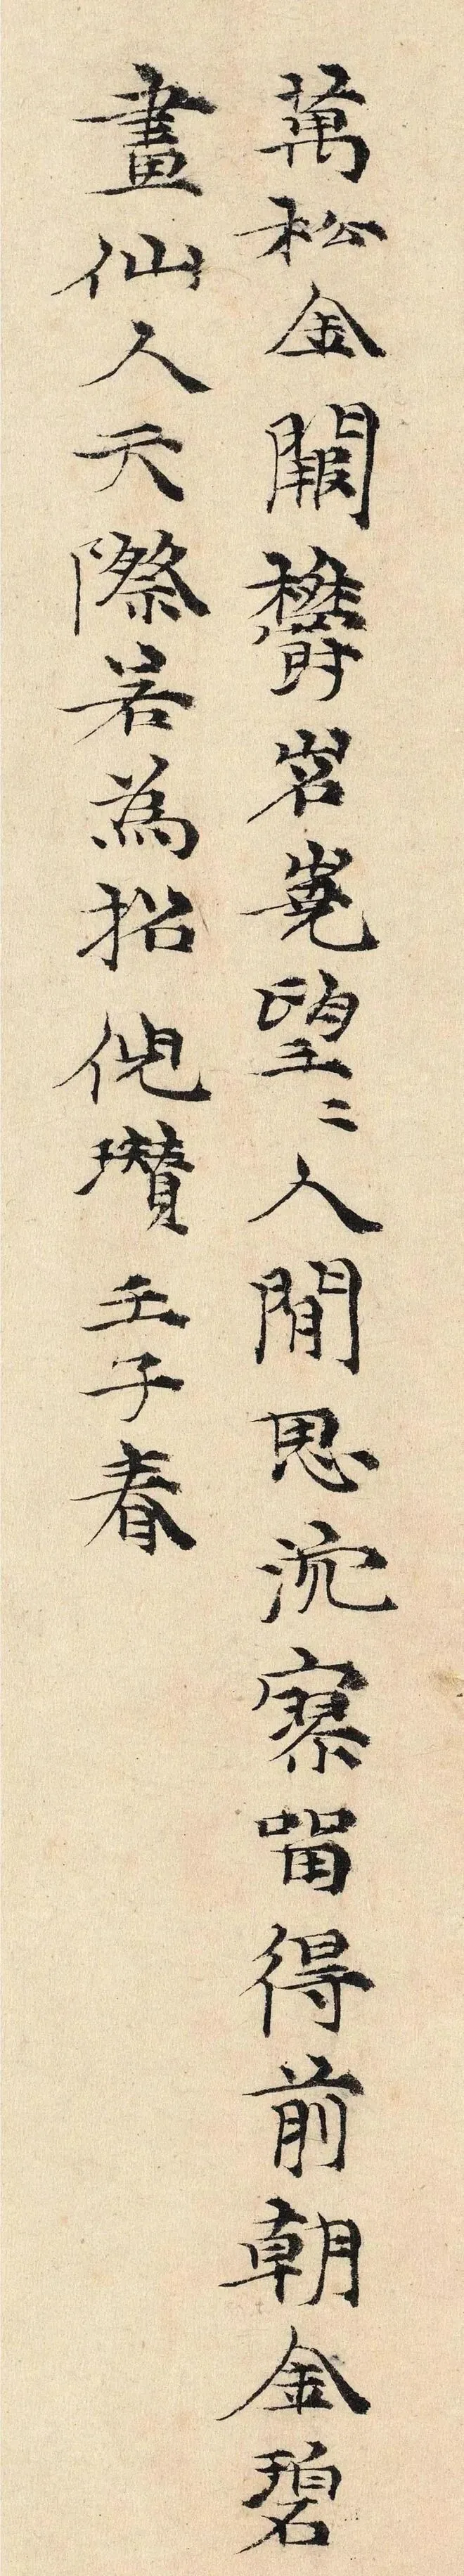 萬松金闕鬱岧嶤望〻人間思泬寥留得前朝金碧
畫仙人天際若為招倪瓚壬子春